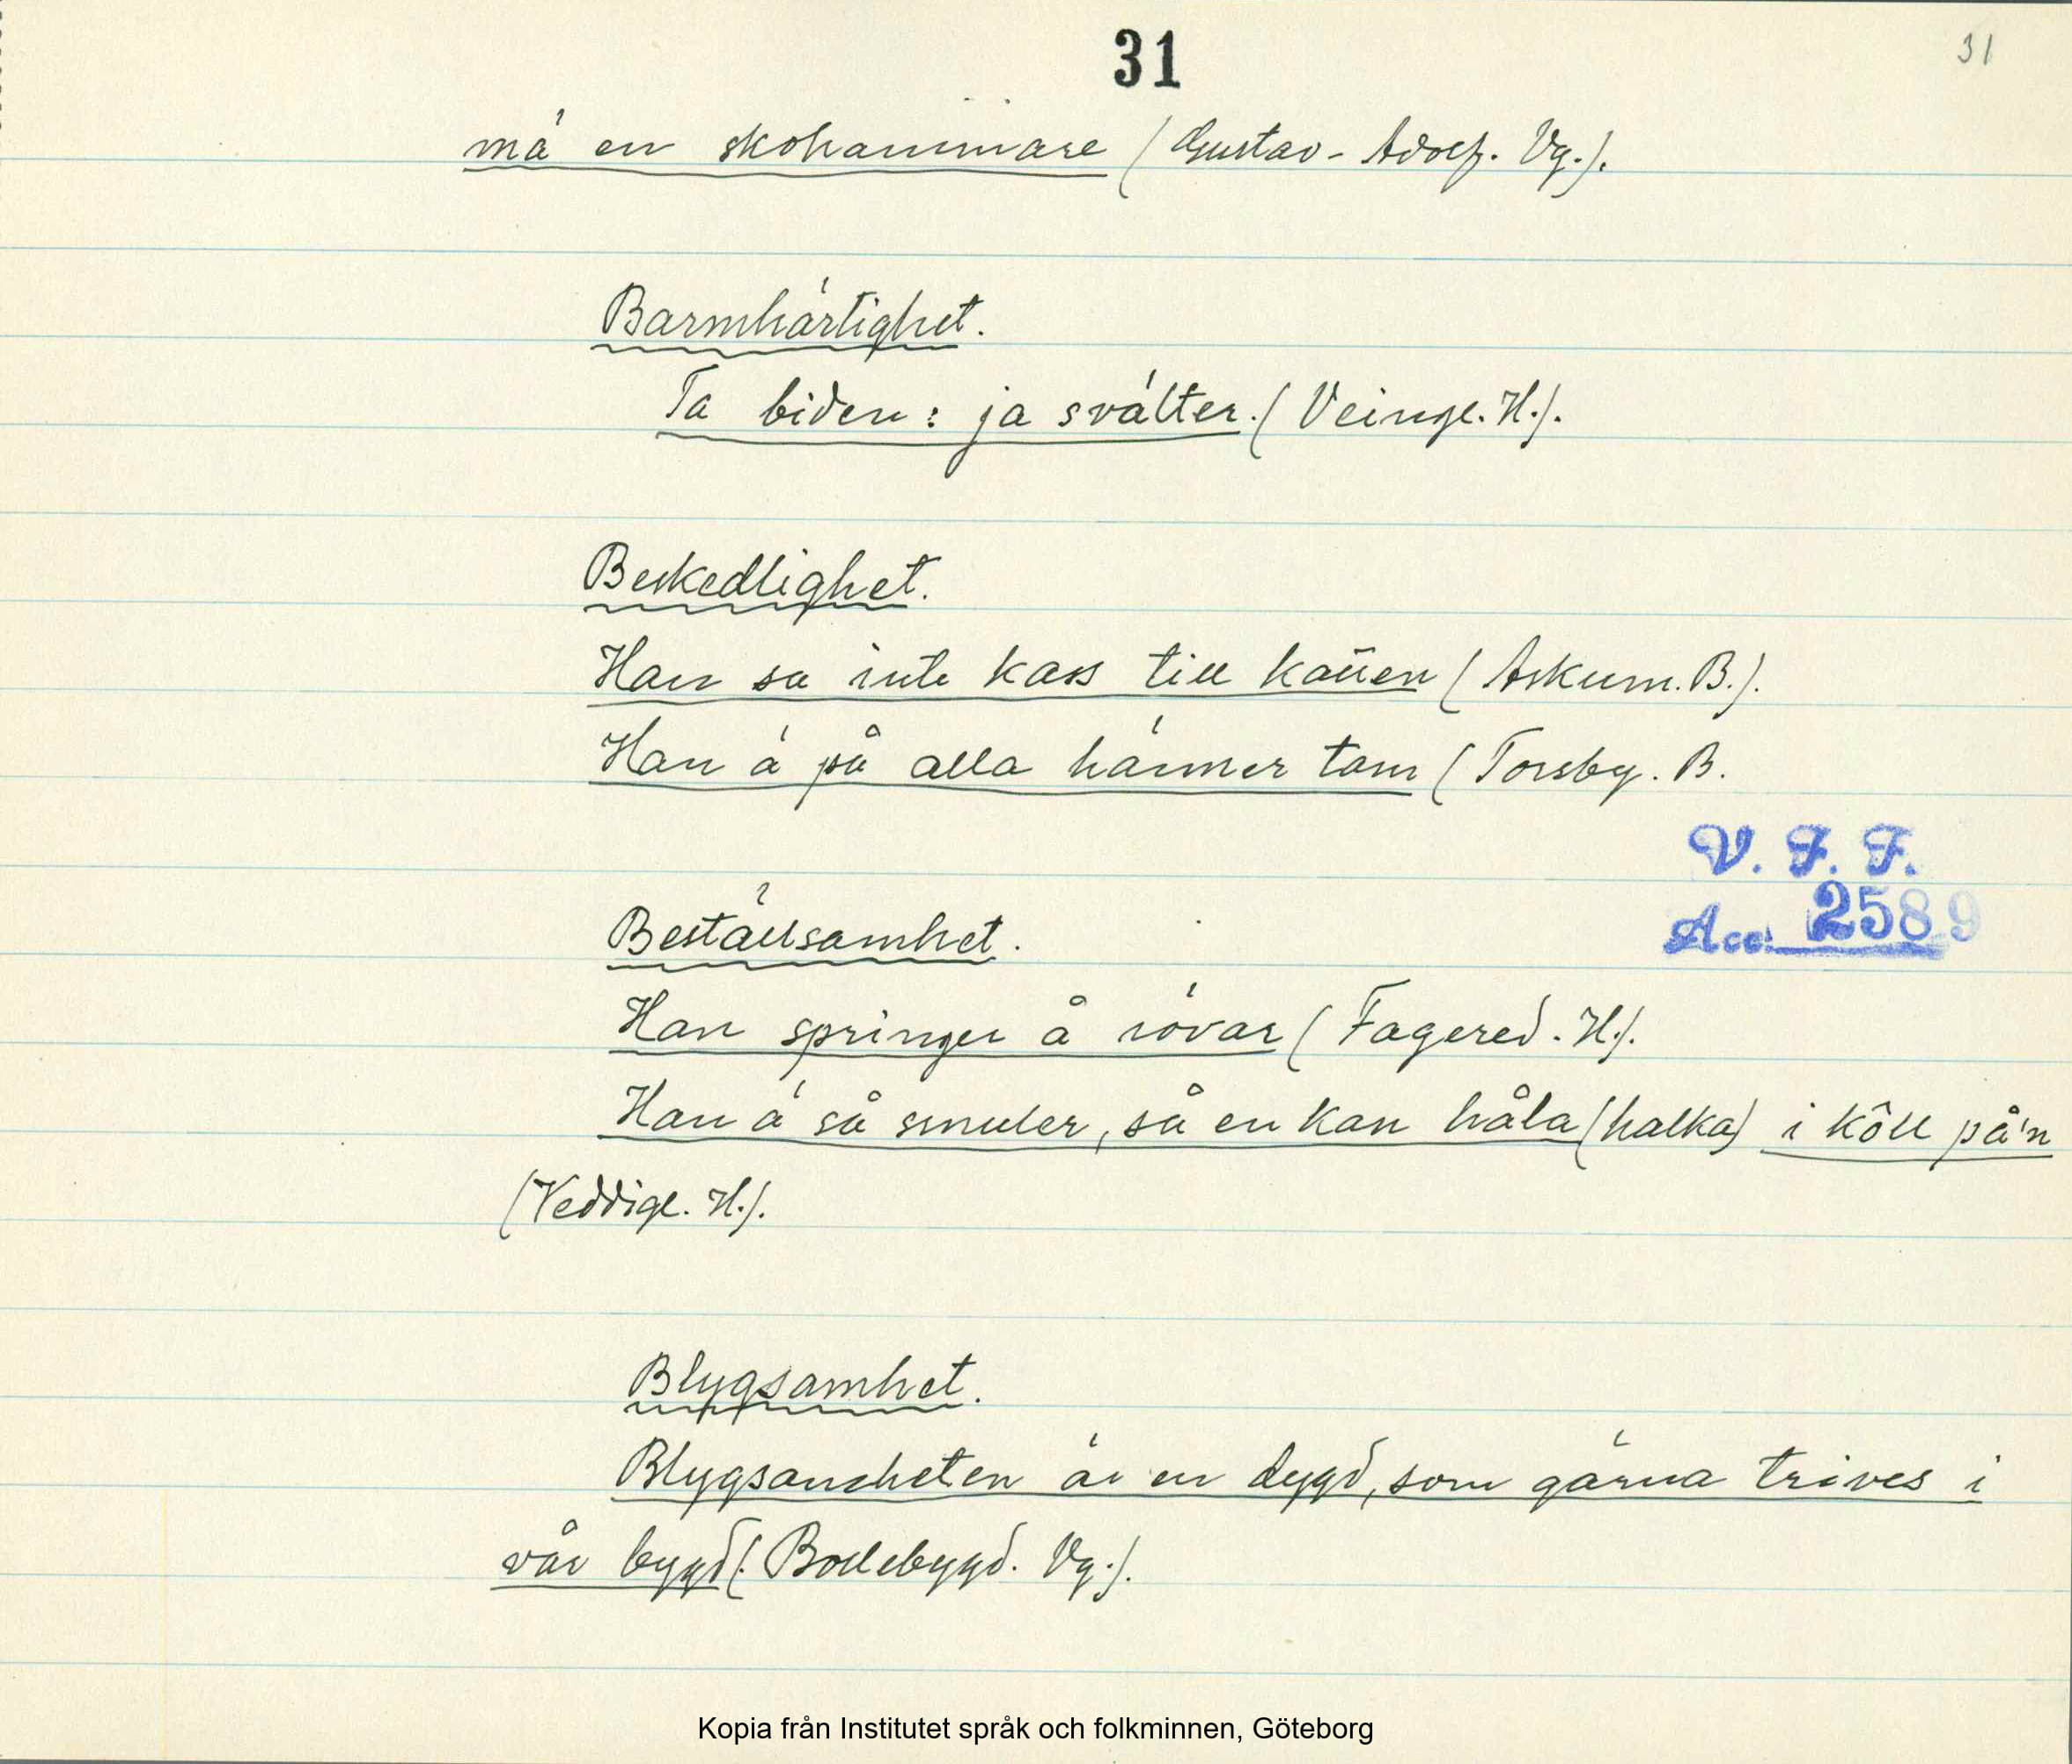 31
31
mä en skohammare (Gustav-Adolf. Vg.).
Barmhärtighet.
Ta biden: ja svälter. (Veinge. H.).
Beskedlighet.
Han sa inte kass till katten (Askum. B.).
Han ä på alla hänner tam (Torsby. B.
V. F. F.
Acc. 2589
Beställsamhet.
Han springer å rövar (Fagered. H.).
Han ä så smuler, så en kan håla (halka) i kôll på'n
(Veddige. H.).
Blygsamhet.
Blygsamheten är en dygd, som gärna trives i
vår bygd (Bollebygd. Vg.).
Kopia från Institutet språk och folkminnen, Göteborg